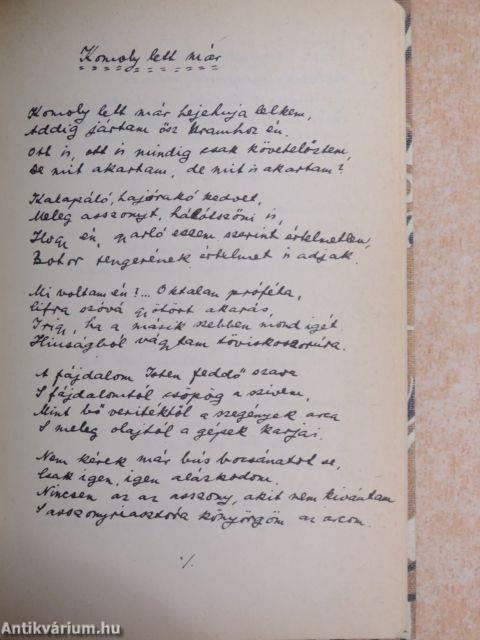 Komoly lett már
Komoly lett már hejehuja lelkem,
Addig jártam ősz Uramhoz én.
Ott is, ott is mindig csak követelőztem,
De mit akartam, de mit is akartam?
Kalapáló, hajórakó kedvet,
Meleg asszonyt, hálótszőni is,
Hogy én, gyarló eszem szerint értelmetlen,
Botor tengerének értelmet is adjak.
Mi voltam én?... Oktalan próféta,
Cifra szóvá gyötört akarás,
Irigy, ha a másik szebben mond igét
Hiuságból vágytam töviskoszorúra.
A fájdalom Isten feddő szava
S fájdalomtól csöpög a szivem,
Mint bő veritéktől a szegények arca
S meleg olajtól a gépek karjai.
Nem kérek már bús bocsánatot se,
Csak igen, igen alázkodom.
Nincsen az az asszony, akit nem kivántam
S asszonyriasztóra könyörgöm az arcom.
./.
Antikvárium.hu